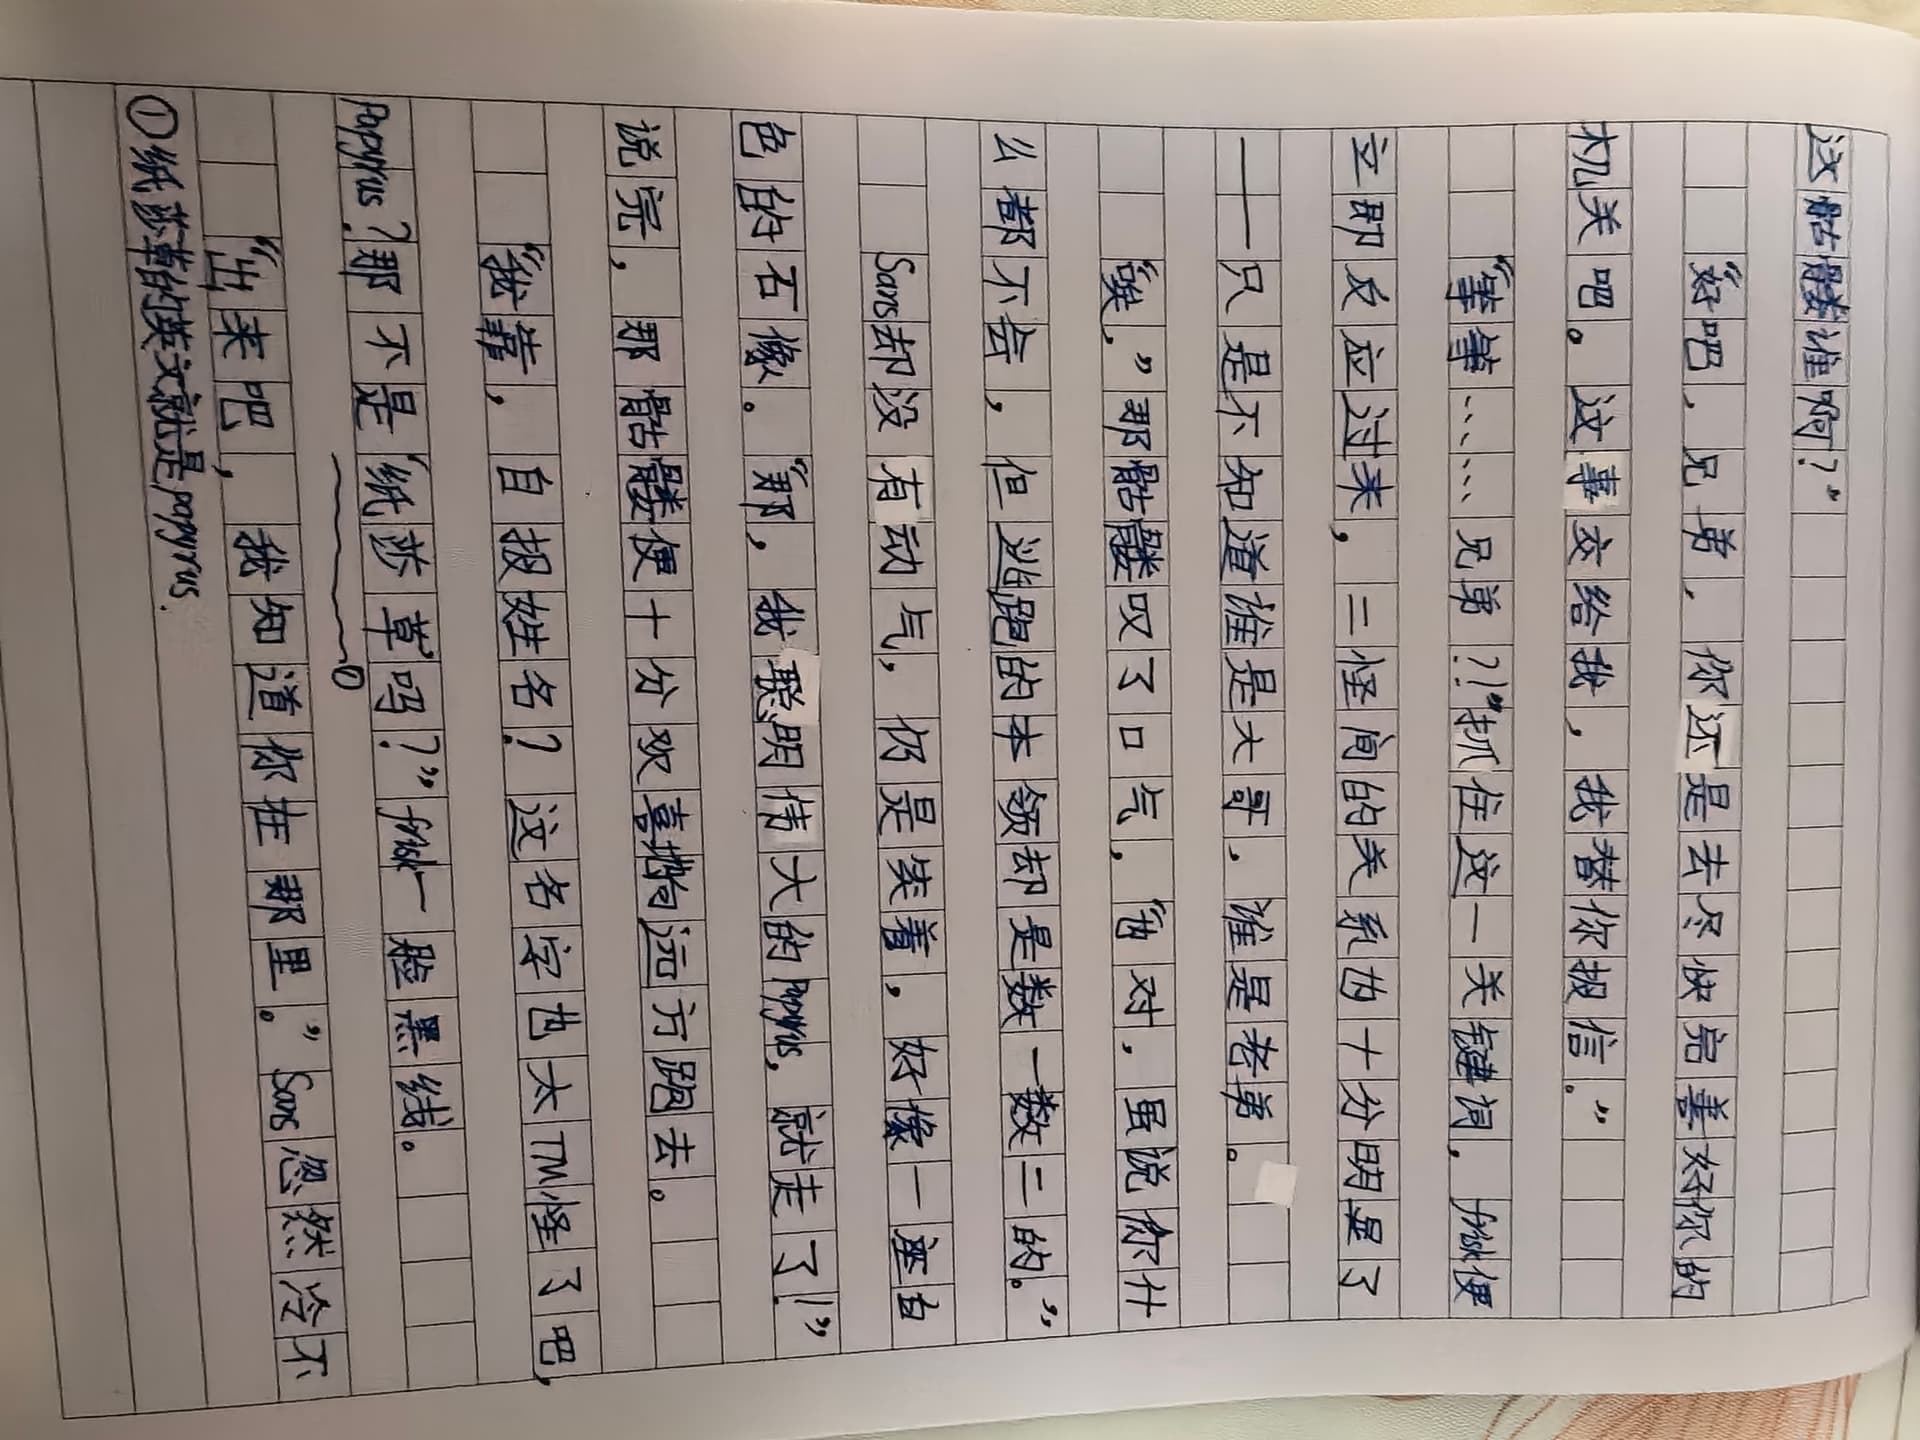 这骷髅谁啊？”
“好吧，兄弟，你还是去尽快完善好你的
机关吧。这事交给我，我替你报信。”
“等等……兄弟？！”抓住这一关键词，frisk便
立即反应过来，二怪间的关系也十分明显了
——只是不知道谁是大哥，谁是老弟。
“唉，”那骷髅叹了口气，“也对，虽说你什
么都不会，但逃跑的本领却是数一数二的。”
Sans却没有动气，仍是笑着，好像一座白
色的石像。“那，我聪明伟大的Papyrus，就走了！”
说完，那骷髅便十分欢喜地向远方跑去。
“我靠，自报姓名？这名字也太TM怪了吧，
Papyrus？那不是‘纸莎草’吗？”frisk一脸黑线。
①
“出来吧，我知道你在那里。”Sans忽然冷不
①纸莎草的英文就是papyrus.